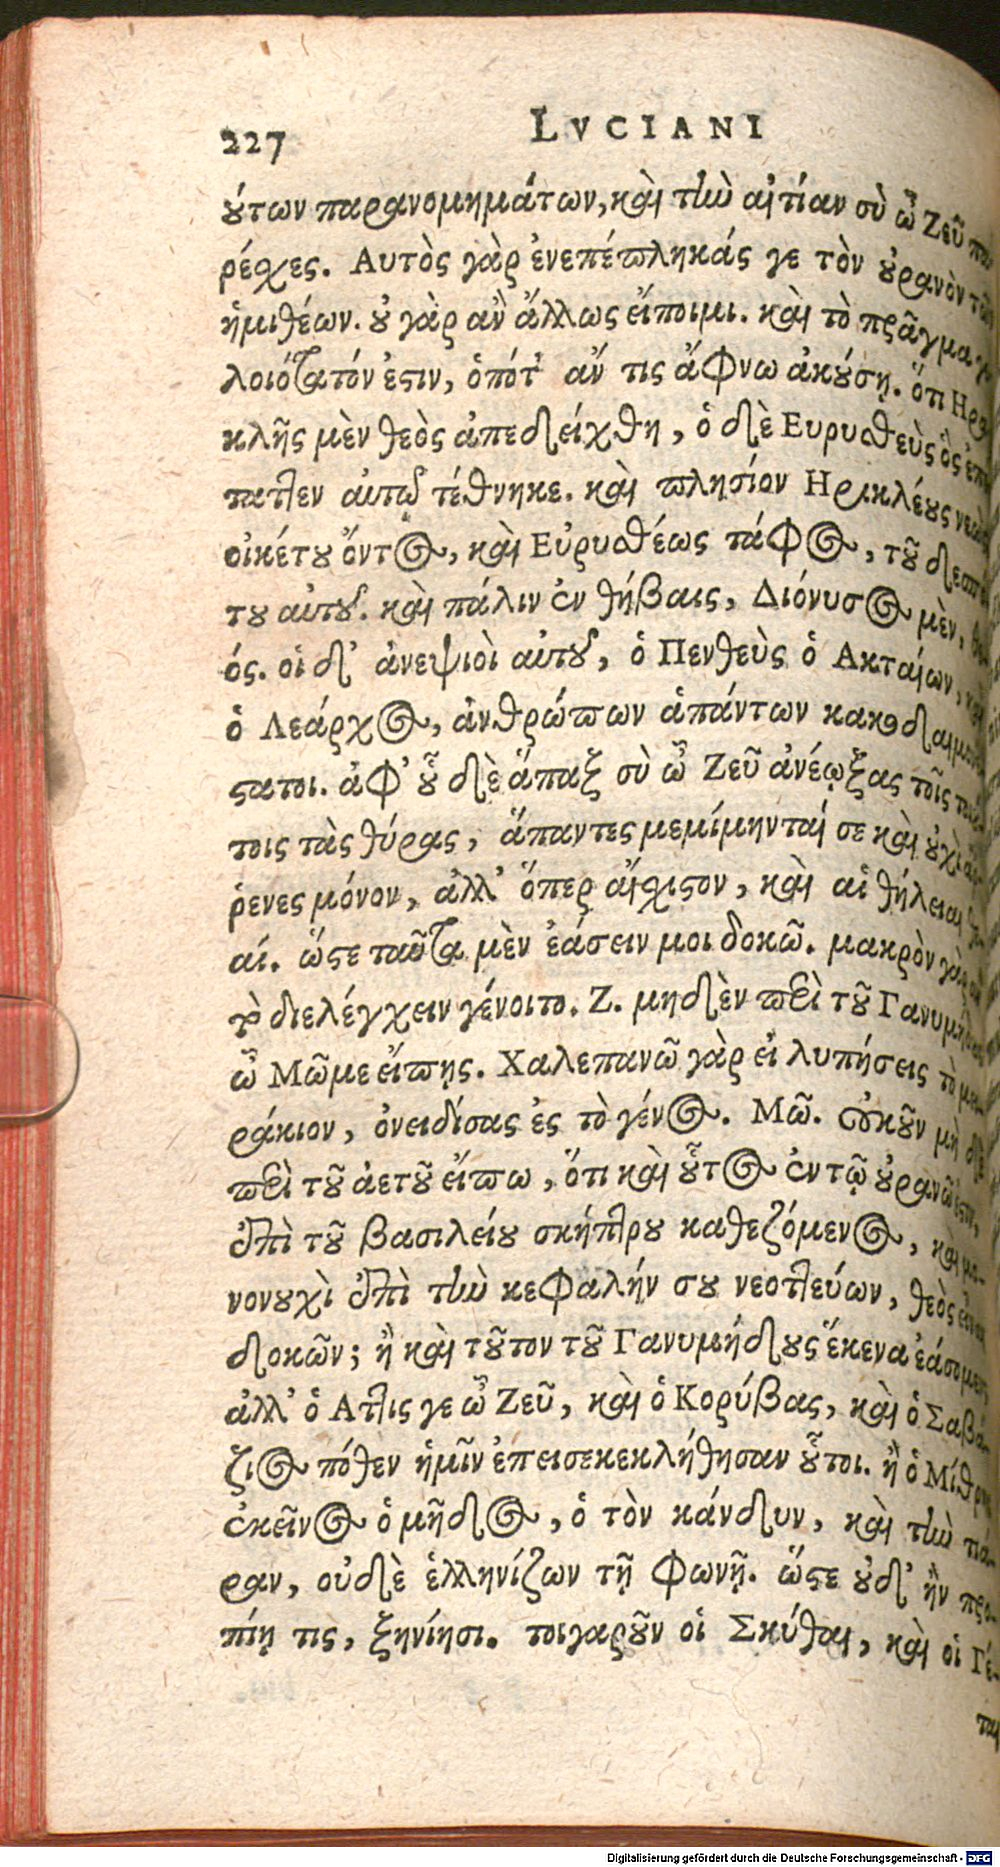 227 LVCIANI
ούτων παρανομημάτων, καὶ τὴν αἰτίαν σὺ ὦ Ζεῦ πα-
ρέχες. Αυτὸς γὰρ ἐνεπέπληκάς γε τὸν οὐρανὸν τῶν
ἡμιθέων. οὐ γὰρ ἂν ἄλλως εἴποιμι. καὶ τὸ πρᾶγμα γε-
λοιότατόν ἐστιν, ὁπότ' ἄν τις ἄφνω ἀκούσῃ. ὅτι Ηρα
κλῆς μὲν θεὸς ἀπεδείχθη, ὁ δὲ Ευρυσθεὺς ὃς ἐπι
ταττεν αὐτῷ τέθνηκε. καὶ πλησίον Ηρακλέους νεὼς
οἰκέτου ὄντος, καὶ Εὐρυσθέως τάφος, τοῦ δεσπό
του αὐτοῦ. καὶ πάλιν ἐν θήβαις, Διόνυσος μὲν, θε
ός. οἱ δ' ἀνεψιοὶ αὐτοῦ, ὁ Πενθεὺς ὁ Ακταίων, καὶ
ὁ Λεάρχος, ἀνθρώπων ἁπάντων κακοδαιμονέ
στατοι. ἀφ' οὗ δὲ ἅπαξ σὺ ὦ Ζεῦ ἀνέῳξας τοῖς τοιού
τοις τὰς θύρας, ἅπαντες μεμίμηνταί σε καὶ οὐχὶ ἄρ
ῥενες μόνον, ἀλλ' ὅπερ αἴσχιστον, καὶ αἱ θήλειαι θε
αί. ὥστε ταῦτα μὲν ἐάσειν μοι δοκῶ. μακρὸν γὰρ ἂν
τὸ διελέγχειν γένοιτο. Ζ. μηδὲν περὶ τοῦ Γανυμήδους
ὦ Μῶμε εἴπῃς. Χαλεπανῶ γὰρ εἰ λυπήσεις τὸ μει-
ράκιον, ὀνειδίσας ἐς τὸ γένος. Μῶ. Οὐκοῦν μὴ δὲ
περὶ τοῦ ἀετοῦ εἴπω, ὅτι καὶ οὗτος ἐν τῷ οὐρανῶ ἐστιν,
ἐπὶ τοῦ βασιλείου σκήπτρου καθεζόμενος, καὶ μο-
νονουχὶ ἐπὶ τὴν κεφαλήν σου νεοττεύων, θεὸς εἶναι
δοκῶν; ἢ καὶ τοῦτον τοῦ Γανυμήδους ἕκενα ἐάσομεν,
ἀλλ' ὁ Αττις γε ὦ Ζεῦ, καὶ ὁ Κορύβας, καὶ ὁ Σαβά-
ζιος πόθεν ἡμῖν ἐπεισεκεκλήθησαν οὗτοι. ἢ ὁ Μίθρης
ἐκεῖνος ὁ μῆδος, ὁ τὸν κάνδυν, καὶ τὴν τιά-
ραν, οὐδὲ ἑλληνίζων τῇ φωνῇ. ὥστε οὐδ' ἢν προ-
πίῃ τις, ξηνίησι. τοιγαροῦν οἱ Σκύθαι, καὶ οἱ Γέ-
ται
Digitalisierung gefördert durch die Deutsche Forschungsgemeinschaft - DFG